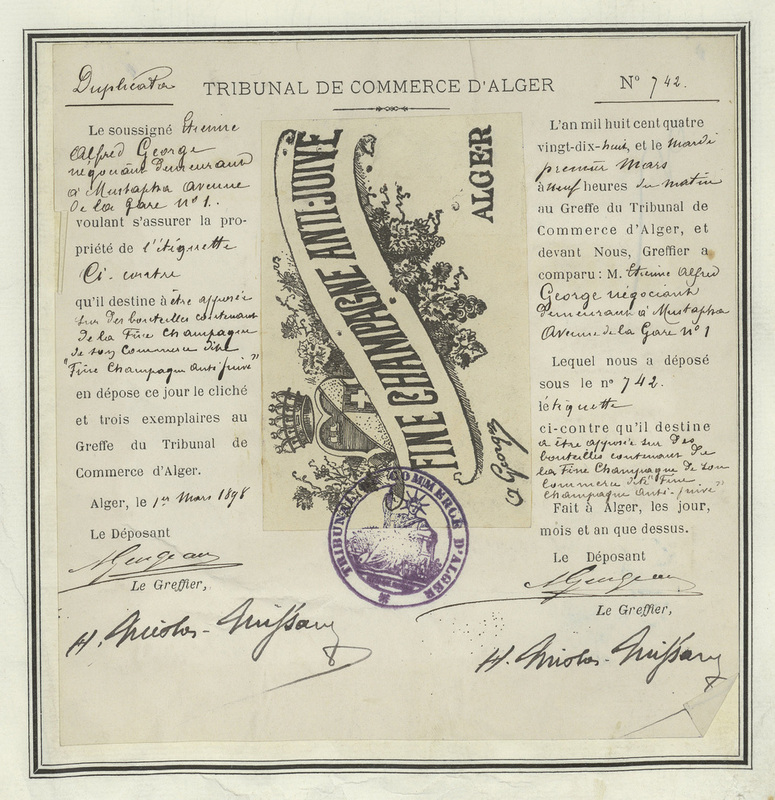 Duplicata
TRIBUNAL DE COMMERCE D'ALGER
N° 742.
Le soussigné Etienne
Alfred George
négociant demeurant
à Mustapha Avenue
de la gare n° 1.
voulant s'assurer la pro-
priété de l'étiquette
Ci-contre
qu'il destine à être apposée
sur des bouteilles contenant
de la Fine Champagne
de son Commerce dite
"Fine Champagne Anti-juive"
en dépose ce jour le cliché
et trois exemplaires au
Greffe du Tribunal de
Commerce d'Alger.
Alger, le 1er Mars 1898
Le Déposant
Le Greffier,
FINE CHAMPAGNE ANTI-JUIVE
ALGER
TRIBUNAL DE COMMERCE D'ALGER
L'an mil huit cent quatre
vingt-dix-huit, et le mardi
premier Mars
à neuf heures du matin
au Greffe du Tribunal de
Commerce d'Alger, et
devant Nous, Greffier a
comparu : M. Etienne Alfred
George négociant
demeurant à Mustapha
Avenue de la Gare n° 1
Lequel nous a déposé
sous le n° 742.
l'étiquette
ci-contre qu'il destine
à être apposée sur des
bouteilles contenant de
la Fine Champagne de son
Commerce dite "Fine
Champagne Anti-juive"
Fait à Alger, les jour,
mois et an que dessus.
Le Déposant
Le Greffier,